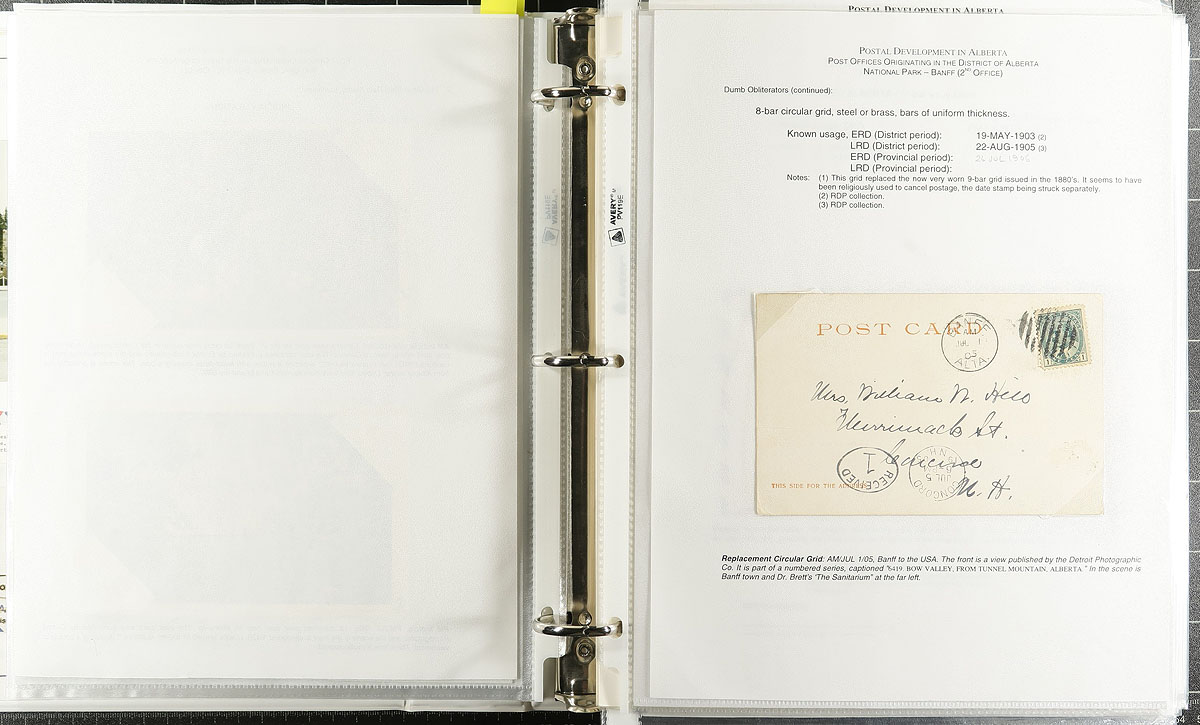 POSTAL DEVELOPMENT IN ALBERTA
POSTAL DEVELOPMENT IN ALBERTA
POST OFFICES ORIGINATING IN THE DISTRICT OF ALBERTA
NATIONAL PARK – BANFF (2ND OFFICE)
Dumb Obliterators (continued):
8-bar circular grid, steel or brass, bars of uniform thickness.
Known usage, ERD (District period): 19-MAY-1903 (2)
LRD (District period): 22-AUG-1905 (3)
ERD (Provincial period):
LRD (Provincial period):
Notes: (1) This grid replaced the now very worn 9-bar grid issued in the 1880's. It seems to have
been religiously used to cancel postage, the date stamp being struck separately.
(2) RDP collection.
(3) RDP collection.
AVERY
PV119E
POST CARD
BANFF
AM
JUL 1
05
ALTA.
1 1
Mrs. William W. Hill
Merrimack St.
N. H.
RECEIVED
1
CONCORD
JUL 5
N.H.
THIS SIDE FOR THE ADDRESS
Replacement Circular Grid: AM/JUL 1/05, Banff to the USA. The front is a view published by the Detroit Photographic
Co. It is part of a numbered series, captioned "6419. BOW VALLEY, FROM TUNNEL MOUNTAIN, ALBERTA." In the scene is
Banff town and Dr. Brett's 'The Sanitarium" at the far left.